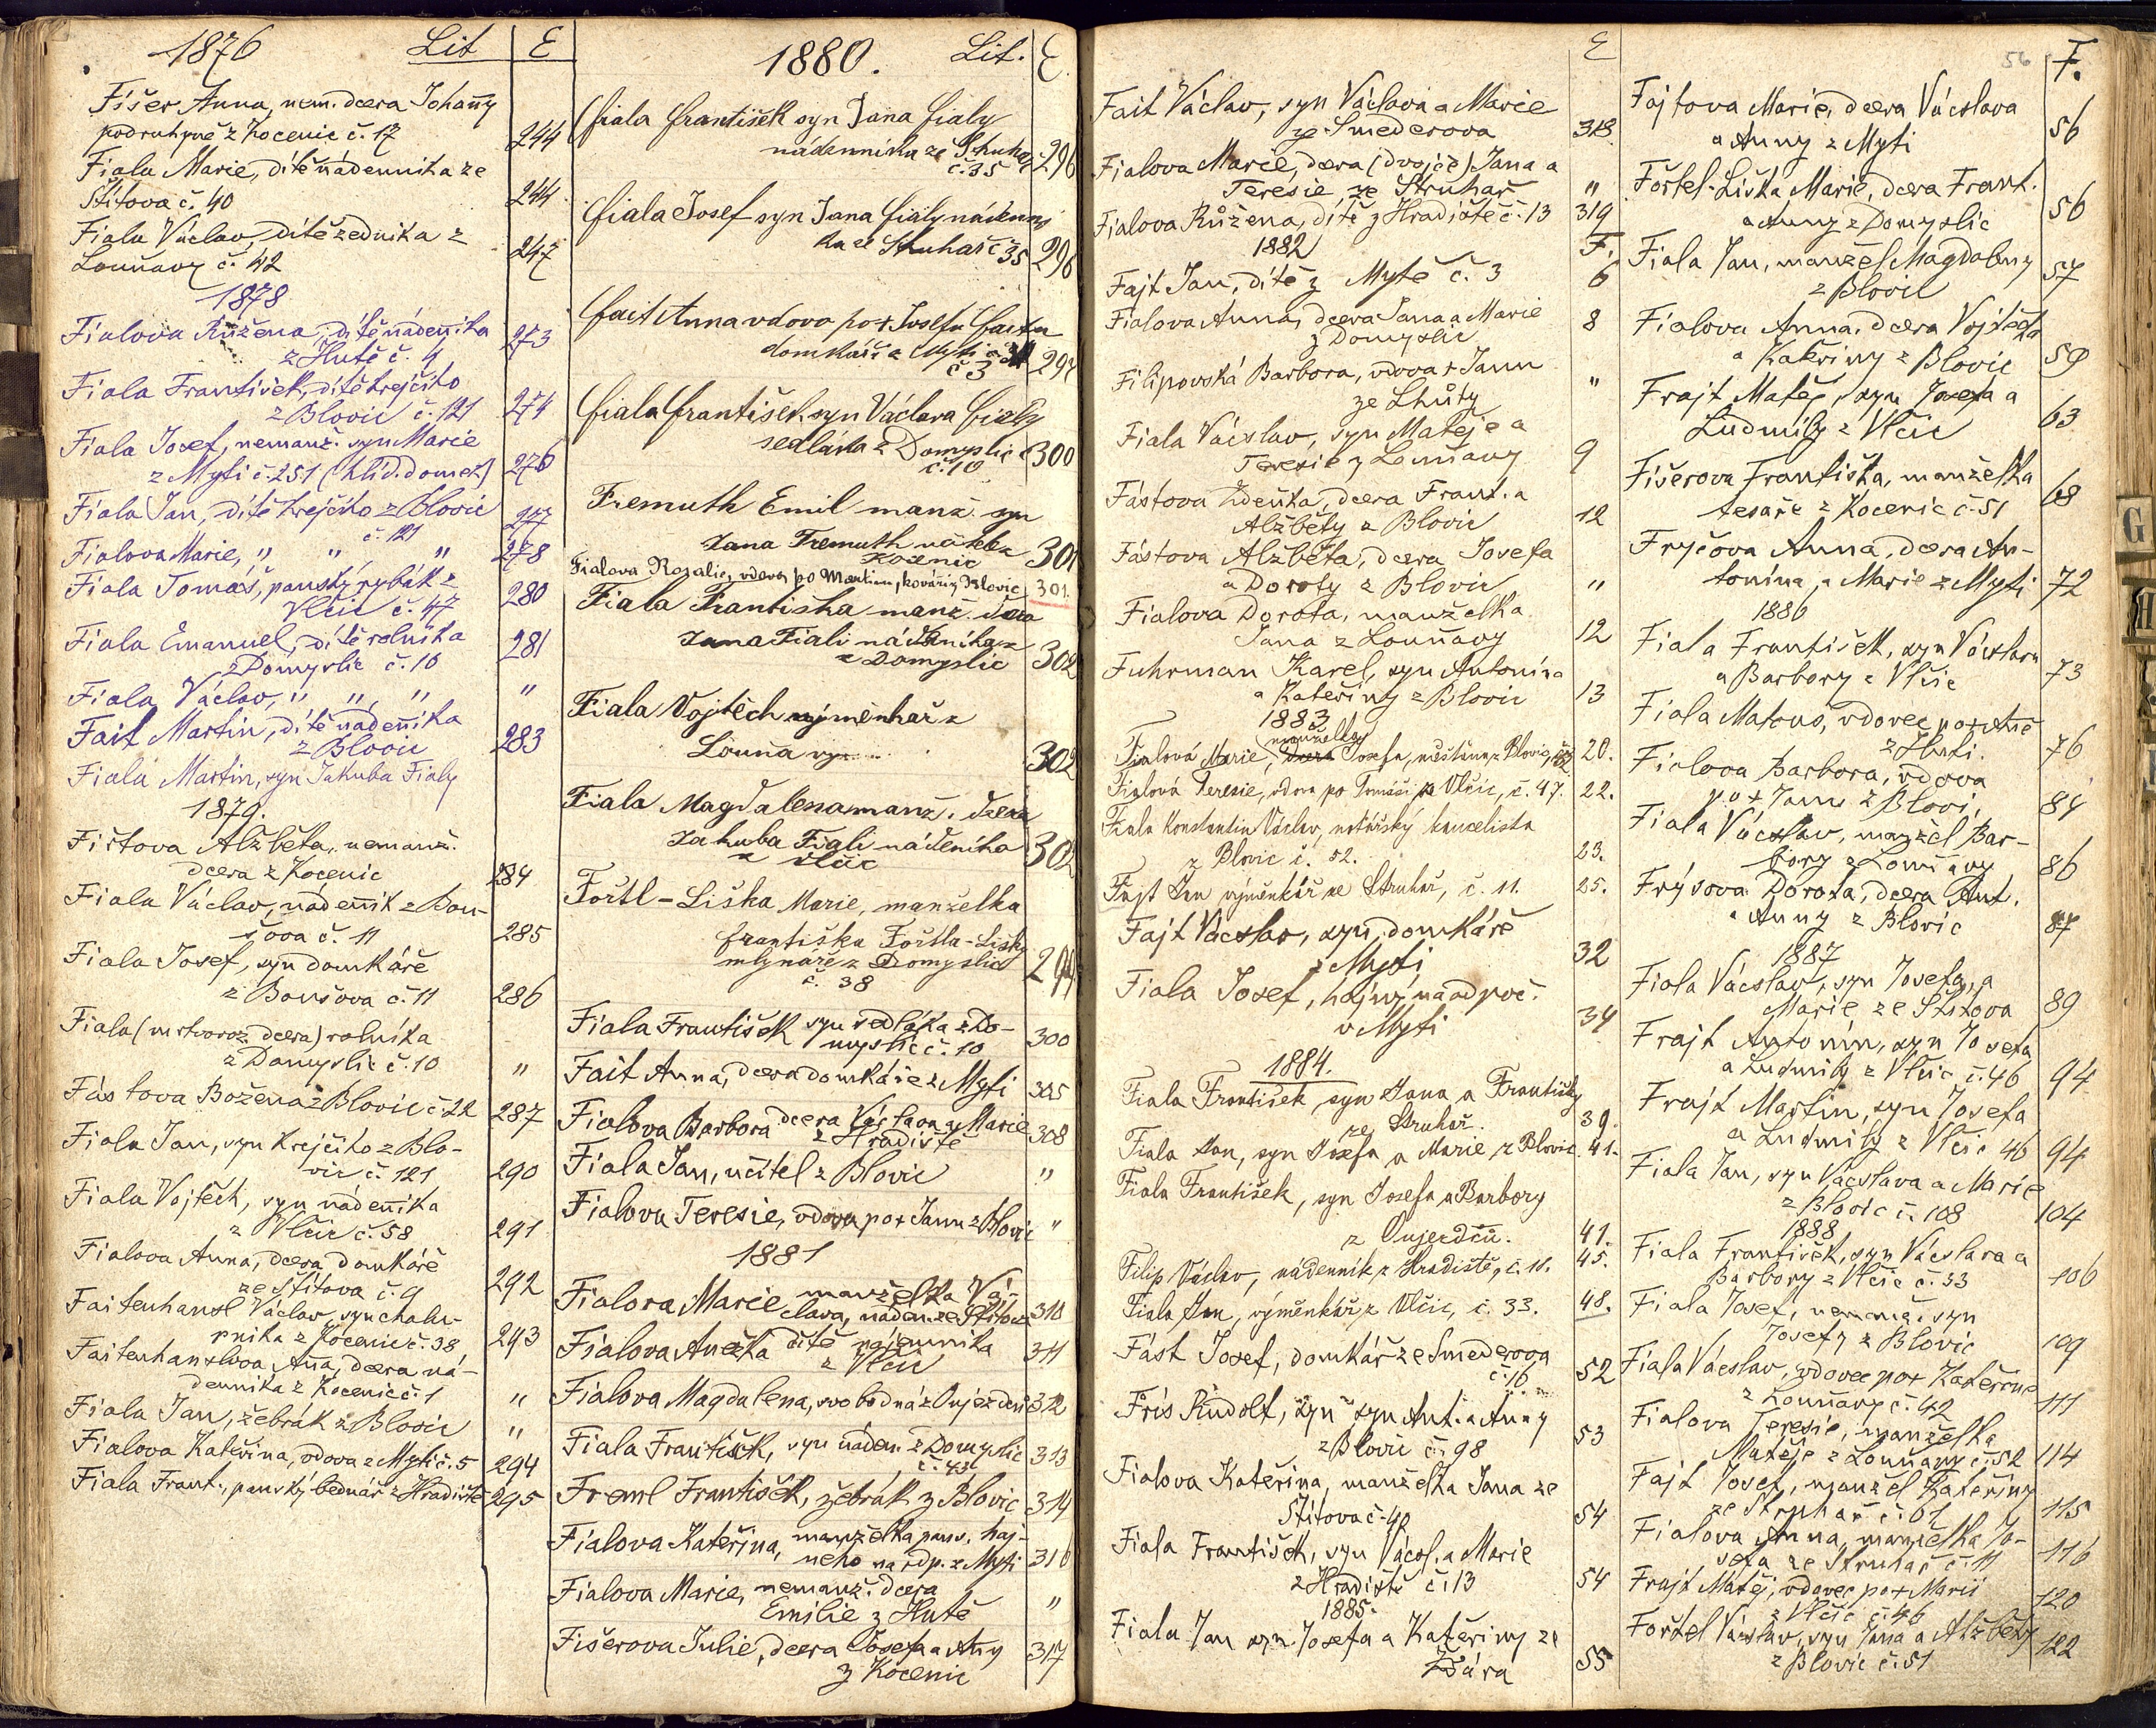 1876 Lit E
Fišer Anna, nem. dcera Johany
podruhyně z Kocenic č. 17 244
Fiala Marie, dítě nádenníka ze
Štítova č. 40 244
Fiala Václav, dítě zedníka z
Louňavy č. 42 247
1878
Fialova Růžena, dítě nádeníka
z Hutě č. 9 273
Fiala František, dítě krejčího
z Blovic č. 121 274
Fiala Josef, nemanž. syn Marie
z Mýti č. 251 (hlíd. domek) 276
Fiala Jan, dítě krejčího z Blovic
č. 121 277
Fialova Marie, " " " 278
Fiala Tomáš, panský rybák z
Vlčic č. 47 280
Fiala Emanuel, dítě rolníka
z Domyslic č. 10 281
Fiala Václav, " " " "
Fait Martin, dítě nádeníka
z Blovic 283
Fiala Martin, syn Jakuba Fialy
1879.
Fištova Alžběta, nemanž.
dcera z Kocenic 284
Fiala Václav, nádeník z Bou-
šova č. 11 285
Fiala Josef, syn domkáře
z Boušova č. 11 286
Fiala (mrtvoroz. dcera) rolníka
z Domyslic č. 10 "
Fástova Božena z Blovic č. 22 287
Fiala Jan, syn krejčího z Blo-
vic č. 121 290
Fiala Vojtěch, syn nádeníka
z Vlčic č. 58 291
Fialova Anna, dcera domkáře
ze Štítova č. 9 292
Faitenhansl Václav, syn chalu-
pníka z Kocenic č. 38, 293
Faitenhanslova Aña, dcera ná-
denníka z Kocenic č. 1 "
Fiala Jan, žebrák z Blovic "
Fialova Kateřina, vdova z Mýti č. 5 294
Fiala Frant., panský bednář z Hradiště 295
1880. Lit. E.
Fiala František syn Jana Fialy
nádenníka ze Struhař
č. 35 296
Fiala Josef syn Jana Fialy nádenní
ka ze Struhař č 35 296
Fait Anna vdova po + Josefu Faitu
domkáři z Mýti
č 3 297
Fiala František syn Václava Fialy
sedláka z Domyslic
č. 10 300
Fremuth Emil manž. syn
Jana Fremuth
Kocenic 301
Fialova Rozalie, vdova po Martinu, kováři z Blovic 301.
Fiala Františka manž. dcera
Jana Fiali nádeníka
z Domyslic 302
Fiala Vojtěch výměnkař z
Louňavy 302
Fiala Magdalena manž. dcera
Jakuba Fiali nádeníka
z Vlčic 302
Fořtl-Liška Marie, manželka
františka Fořtla-Lišky
mlynáře z Domyslic
č. 38 299
Fiala František syn sedláka z Do-
myslic č. 10 300
Fait Anna, dcera domkáře z Mýti 305
Fialova Barbora dcera Václava a Marie
z Hradiště 308
Fiala Jan, učitel z Blovic "
Fialova Teresie, vdova po + Janu z Blovic "
1881
Fialova Marie manželka Vá-
clava, náden. ze Štítova 310
Fialova Anežka dítě nájemníka
z Vlčic 311
Fialova Magdalena, svobodná z Oujezdce 312
Fiala František, syn náden. z Domyslic
č. 43 313
Freml František, žebrák z Blovic 314
Fialova Kateřina, manželka pans. haj-
neho na odp. z Mýti 316
Fialova Marie, nemanž. dcera
Emilie z Hutě "
Fišerova Julie, dcera Josefa a Any
z Kocenic 317
E
Fait Václav, syn Václava a Marie
ze Smederova 318.
Fialova Marie, dcera (dvojče) Jana a
Teresie ze Struhař "
Fialova Růžena, dítě z Hradiště č. 13 319
1882 F.
Fajt Jan, dítě z Mýtě č. 3 6
Fialova Anna, dcera Jana a Marie
z Domyslic 8
Filipovská Barbora, vdova + Janu
ze Lhůty "
Fiala Václav, syn Matěje a
Teresie z Louňavy 9
Fástova Zdeňka, dcera Frant. a
Alžběty z Blovic 12
Fástova Alžběta, dcera Josefa
a Doroty z Blovic "
Fialova Dorota, manželka
Jana z Louňavy 12
Fuhrman Karel, syn Antonína
a Kateřiny z Blovic 13
1883
manželka
Fialová Marie, dcera Josefa, měšťana z Blovic, 20.
Fialová Teresie, vdova po Tomáši z Vlčic, č. 47. 22.
Fiala Konstantin Václav, notářský kancelista
z Blovic č. 52. 23.
Fajt Jan výměnkář ze Struhař, č. 11. 25.
Fajt Václav, syn domkáře
z Mýti 32
Fiala Josef, hajný na odpoč.
v Mýti 34
1884.
Fiala František syn Jana a Františky
ze Struhař. 39.
Fiala Jan, syn Josefa a Marie z Blovic 41.
Fiala František, syn Josefa a Barbory
z Oujezdčů. 41.
Filip Václav, nádenník z Hradiště, č. 11. 45.
Fiala Jan, výměnkář z Vlčic, č. 33. 48.
Fást Josef, domkář ze Smederova
č. 16 52
Friš Rudolf, syn Ant. a Anny
z Blovic č. 98 53
Fialova Kateřina, manželka Jana ze
Štítova č. 40 54
Fiala František, syn Václ. a Marie
z Hradiště č. 13 54
1885.
Fiala Jan syn Josefa a Kateřiny ze
Žďára 55
56 F.
Fajtova Marie, dcera Václava
a Anny z Mýti 56
Fořtel-Liška Marie, dcera Frant.
a Anny z Domyslic 56
Fiala Jan, manžel Magdaleny
z Blovic 57
Fialova Anna, dcera Vojtěcha
a Kateřiny z Blovic 59
Frajt Matěj, syn Josefa a
Ludmily z Vlčic 63
Fišerova Františka, manželka
tesaře z Kocenic č. 51 68
Fryčova Anna, dcera An-
tonína a Marie z Mýti 72
1886
Fiala František, syn Václava
a Barbory z Vlčic 73
Fiala Matous, vdovec po + Aně
z Huti. 76
Fialova Barbora, vdova
po + Janu z Blovic 84
Fiala Václav, manžel Bar-
bory z Louňavy 86
Frýsova Dorota, dcera Ant.
a Anny z Blovic 87
1887
Fiala Václav, syn Josefa, a
Marie ze Štítova 89
Frajt Antonín, syn Josefa
a Ludmily z Vlčic č. 46 94
Frajt Martin, syn Josefa
a Ludmily z Vlčic 46 94
Fiala Jan, syn Václava a Marie
z Blovic č. 108 104
1888
Fiala František, syn Václava a
Barbory z Vlčic č. 33 106
Fiala Josef, nemanž. syn
Josefy z Blovic 109
Fiala Václav, vdovec po + Kateřině
z Louňavy č. 42 111
Fialova Teresie, manželka
Matěje z Louňavy č. 52 114
Fajt Josef, manžel Kateřiny
ze Struhař č. 61 115
Fialova Anna, manželka Jo-
sefa ze Struhař č. 11 116
Frajt Matěj, vdovec po + Marii
z Vlčic č. 46 120
Fořtel Václav, syn Jana a Alžběty
z Blovic č. 51 122
G
H